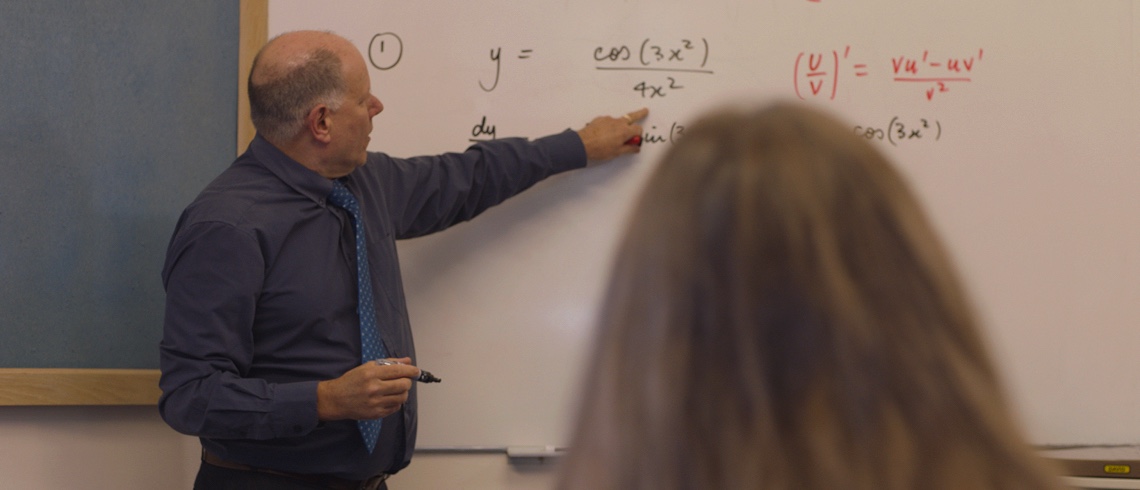 ① y = cos(3x²)/4x²
(u/v)' = vu' - uv'/v²
dy sin(3 cos(3x²)